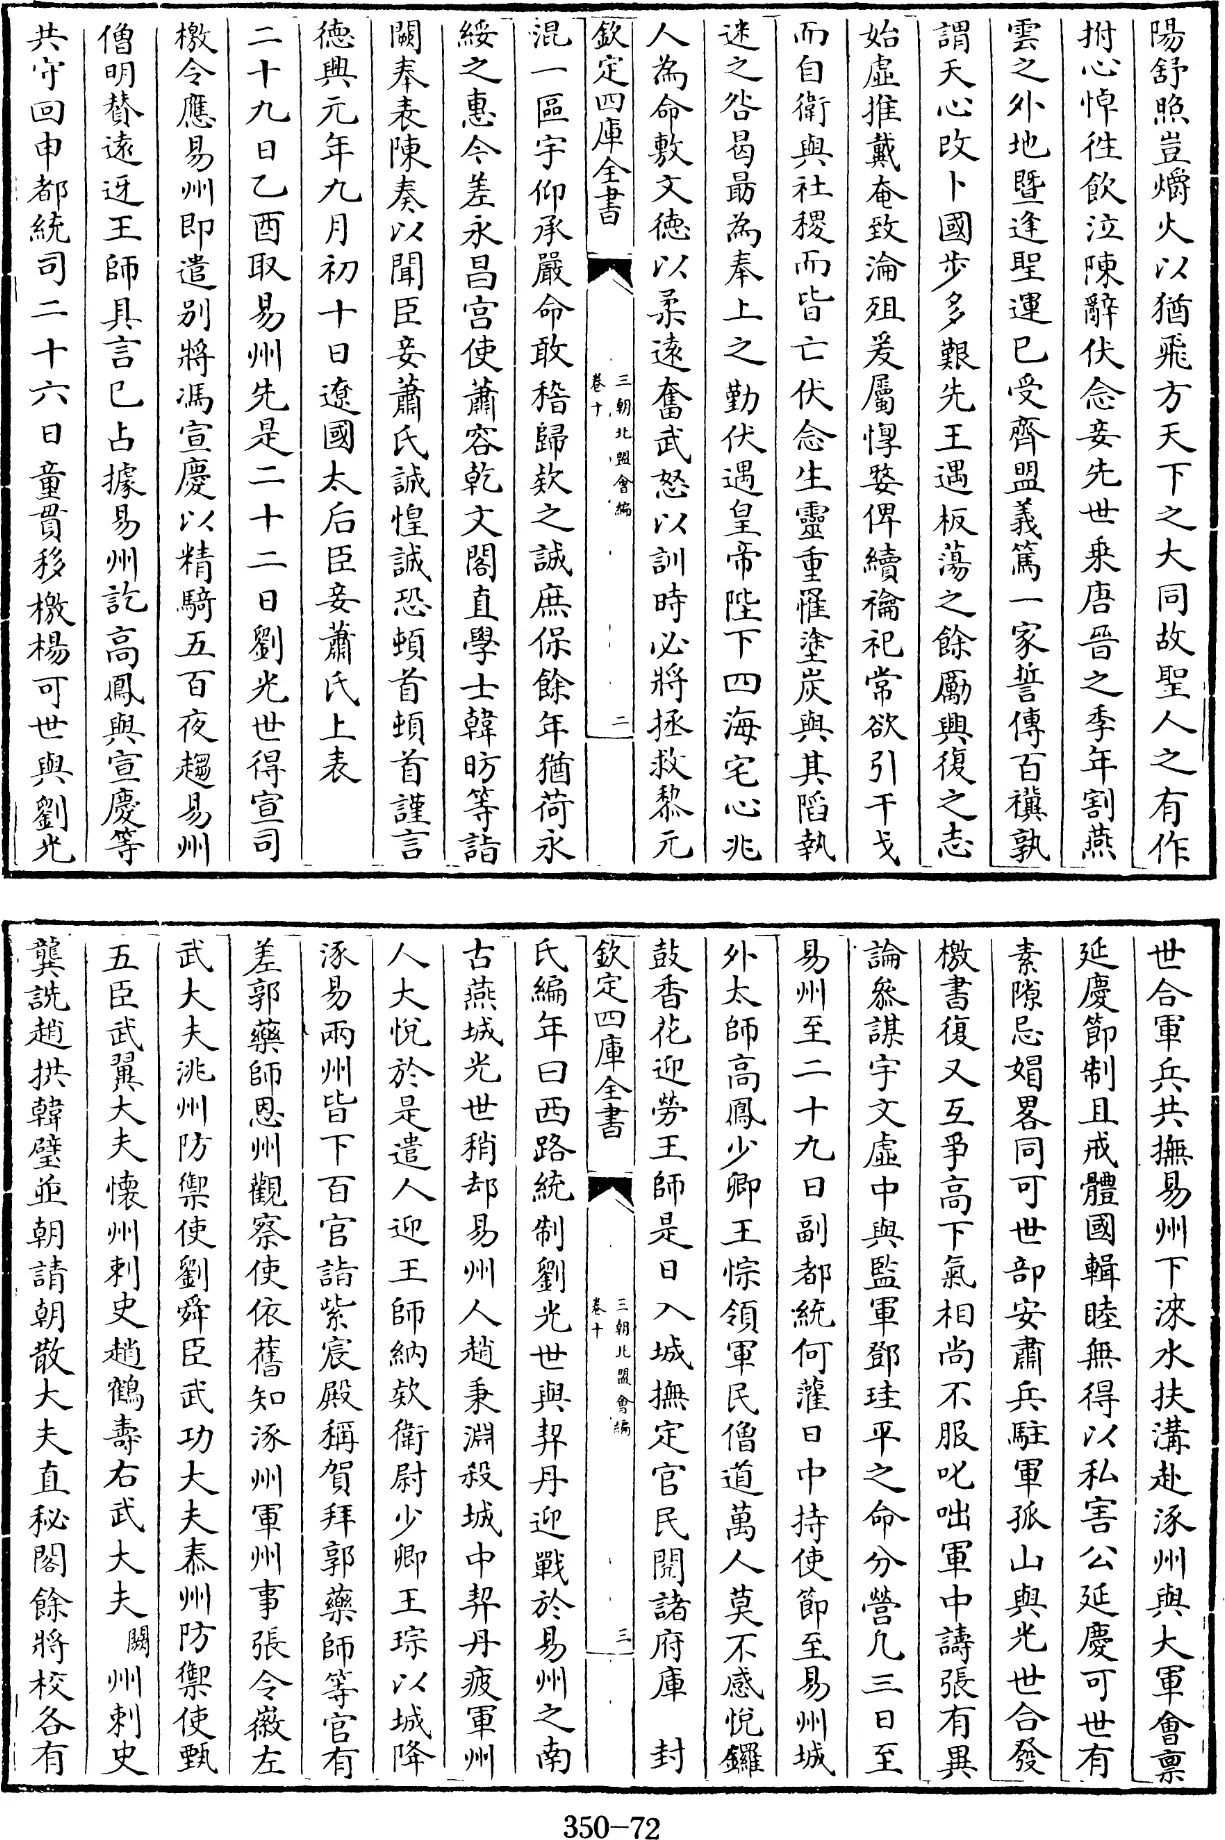 陽舒照豈爝火以猶飛方天下之大同故聖人之有作
拊心悼徃飲泣陳辭伏念妾先世乗唐晉之季年割燕
雲之外地暨逢聖運已受齊盟義篤一家誓傳百禩孰
謂天心改卜國步多艱先王遇板蕩之餘勵興復之志
始虛推戴奄致淪殂爰屬惸嫠俾續禴祀常欲引干戈
而自衛與社稷而皆亡伏念生靈重罹塗炭與其蹈執
迷之咎曷勗為奉上之勤伏遇皇帝陛下四海宅心兆
人為命敷文德以柔遠奮武怒以訓時必將拯救黎元
欽定四庫全書
三朝北盟會編
卷十
二
混一區宇仰承嚴命敢稽歸欵之誠庶保餘年猶荷永
綏之惠今差永昌宫使蕭容乾文閣直學士韓昉等詣
闕奉表陳奏以聞臣妾蕭氏誠惶誠恐頓首頓首謹言
德興元年九月初十日遼國太后臣妾蕭氏上表
二十九日乙酉取易州先是二十二日劉光世得宣司
檄令應易州即遣别將馮宣慶以精騎五百夜趨易州
僧明賛遠迓王師具言已占據易州訖高鳳與宣慶等
共守回申都統司二十六日童貫移檄楊可世與劉光
世合軍兵共撫易州下淶水扶溝赴涿州與大軍會禀
延慶節制且戒體國輯睦無得以私害公延慶可世有
素隙忌娼畧同可世部安肅兵駐軍孤山與光世合發
檄書復又互爭高下氣相尚不服叱咄軍中譸張有異
論叅謀宇文虛中與監軍鄧珪平之命分營凢三日至
易州至二十九日副都統何灌日中持使節至易州城
外太師高鳳少卿王悰領軍民僧道萬人莫不感悅鑼
鼓香花迎勞王師是日入城撫定官民閱諸府庫 封
欽定四庫全書
三朝北盟會編
卷十
三
氏編年曰西路統制劉光世與契丹迎戰於易州之南
古燕城光世稍却易州人趙秉淵殺城中契丹疲軍州
人大悅於是遣人迎王師納欵衛尉少卿王琮以城降
涿易兩州皆下百官詣紫宸殿稱賀拜郭藥師等官有
差郭藥師恩州觀察使依舊知涿州軍州事張令徽左
武大夫洮州防禦使劉舜臣武功大夫㤗州防禦使甄
五臣武翼大夫懐州刺史趙鶴壽右武大夫闕州刺史
龔詵趙拱韓璧並朝請朝散大夫直秘閣餘將校各有
350-72